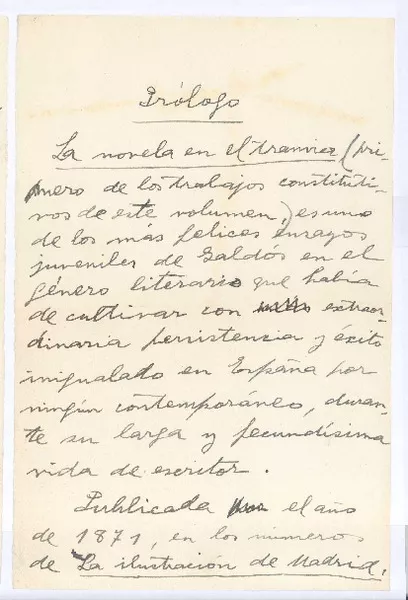 Prólogo
La novela en el tranvía (pri-
mero de los trabajos constituti-
vos de este volumen,) es uno
de los más felices ensayos
juveniles de Galdós en el
género literario que había
de cultivar con extraor-
dinaria persistencia y éxito
inigualado en España por
ningún contemporáneo, duran-
te su larga y fecundísima
vida de escritor.
Publicada el año
de 1871, en los números
de La ilustración de Madrid,